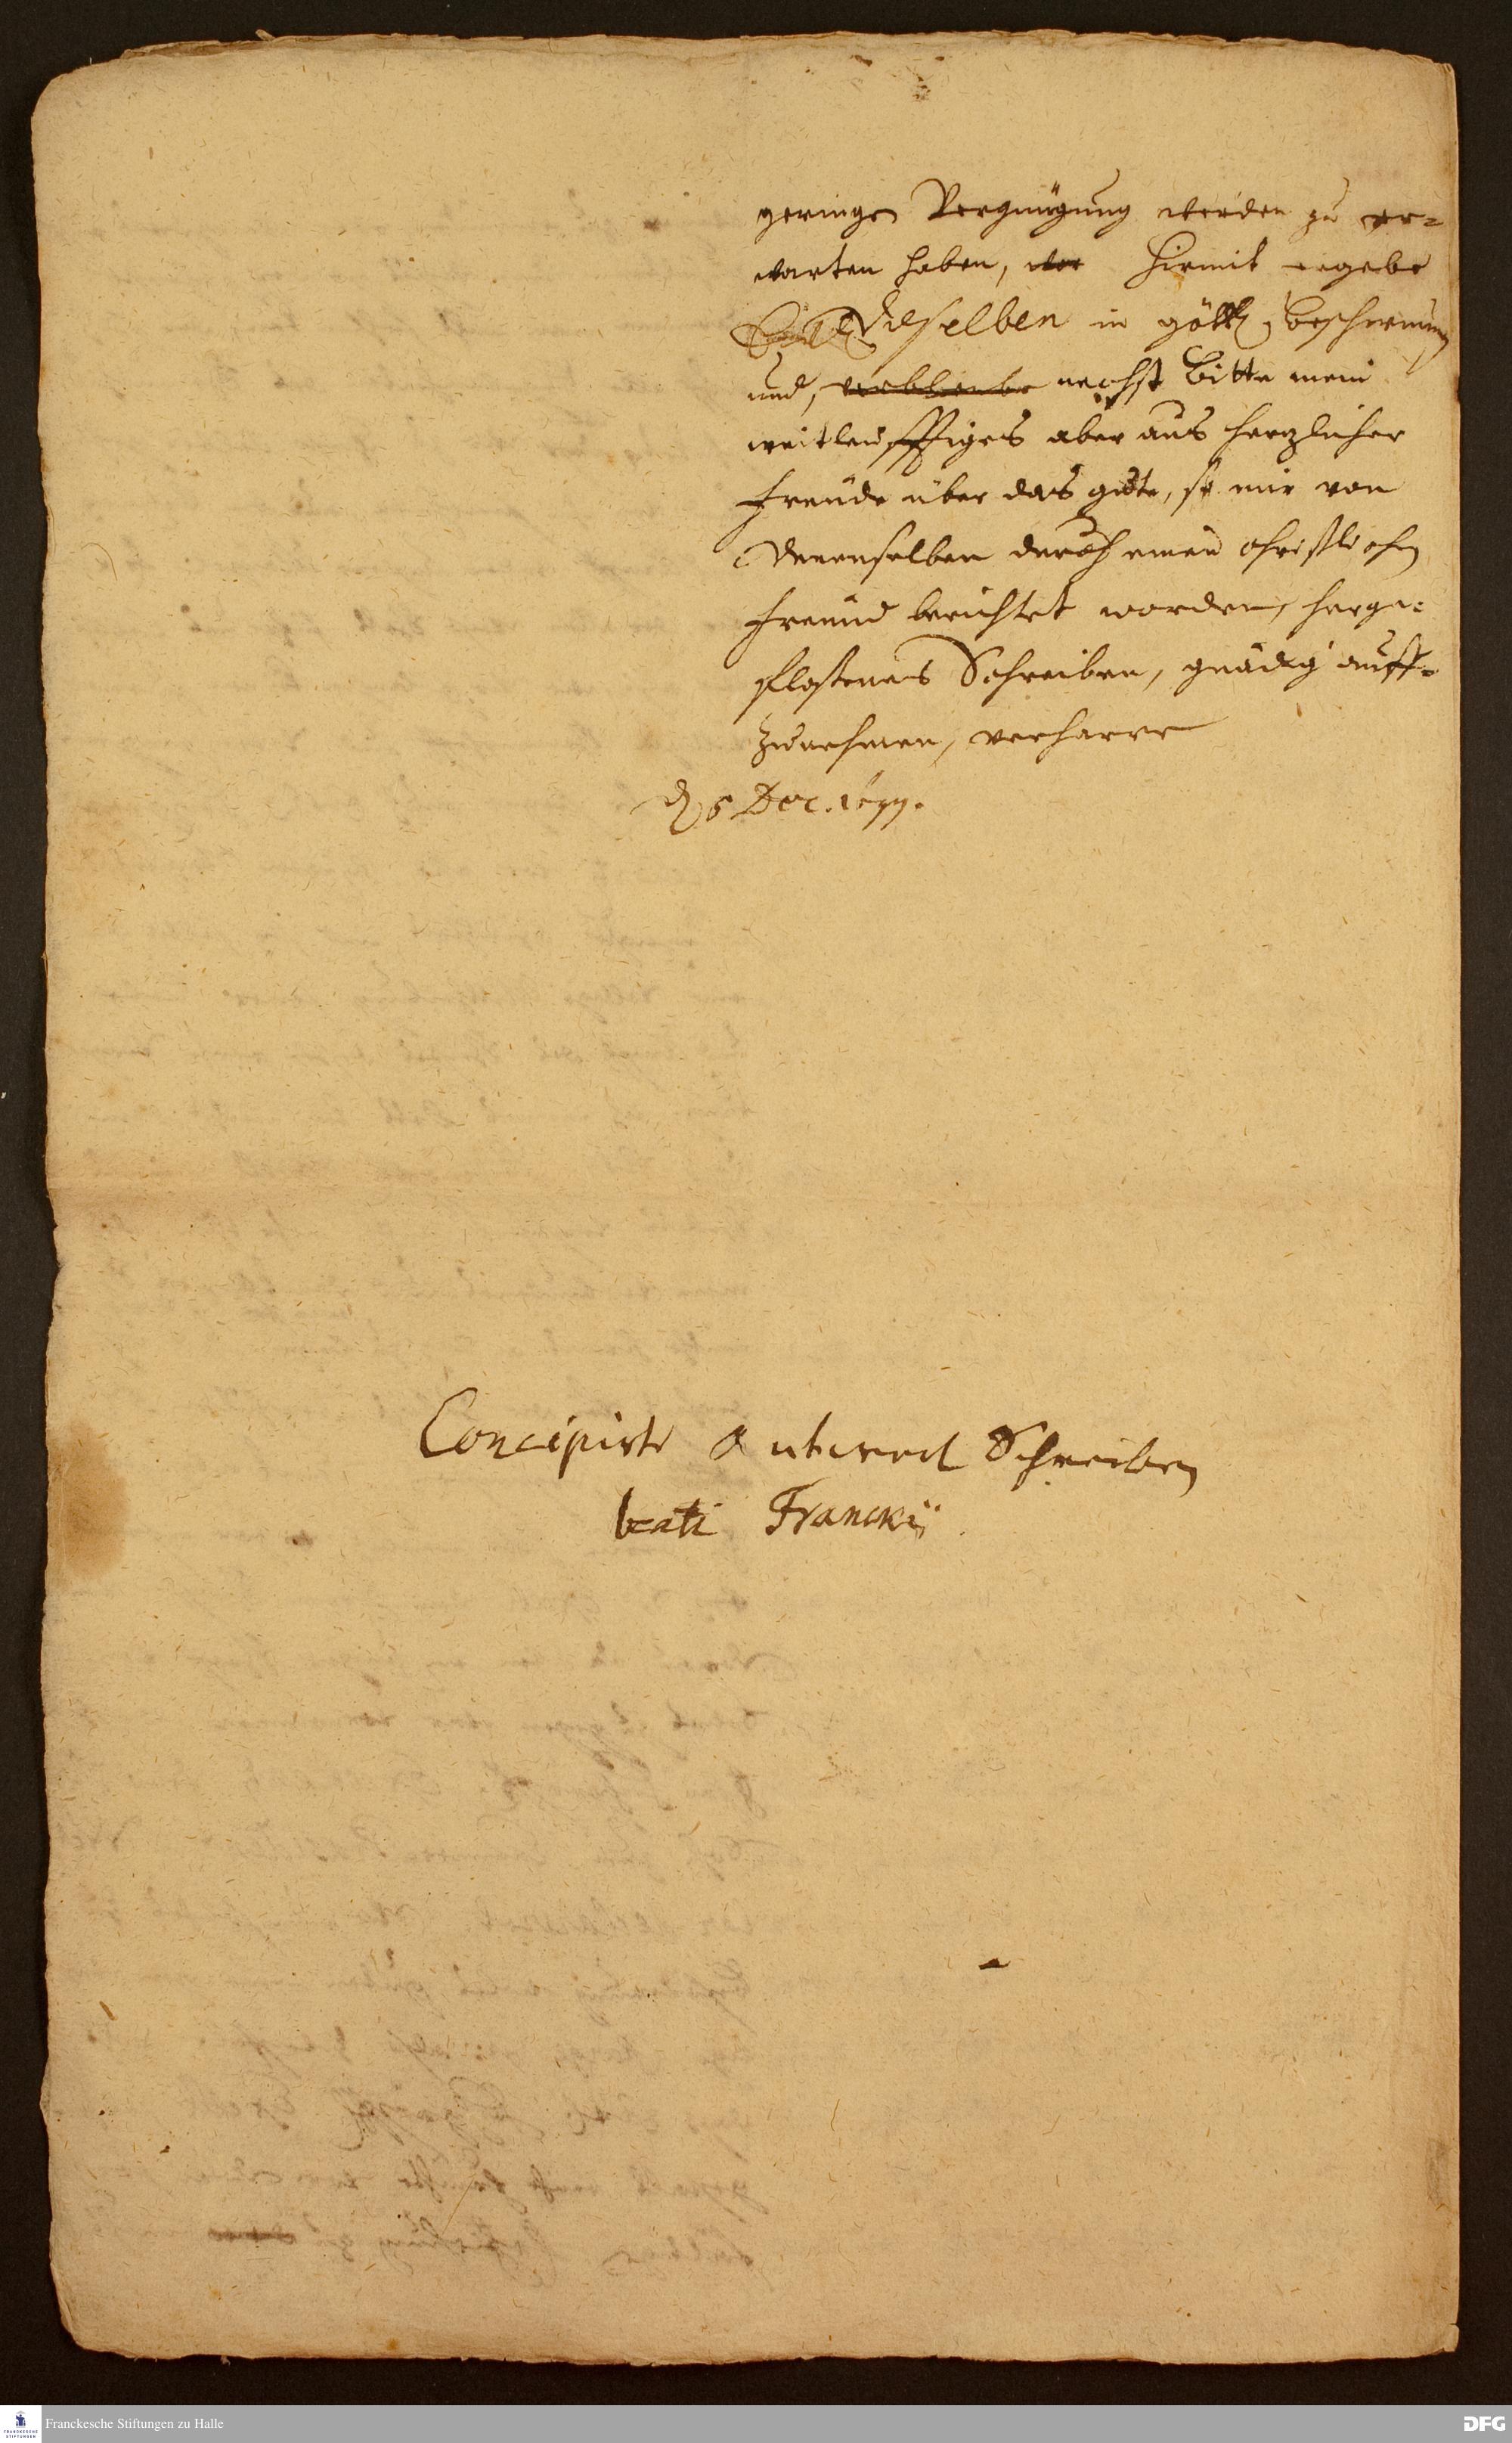 geringes Vergnügung werden zu er-
warten haben, hiermit ergebe
dieselben in göttl. beschirmung
und, verbleibe nechst bitte mein
weitleufftiges aber aus herzlicher
freude über das gute, so mir von
denenselben durch einen christlichen
freund berichtet worden, herge-
floßenes Schreiben, gnädig auff-
zunehmen, verharre
d. 6 Dec. 1699.
Concipirte Antword Schreiben
beati Franckii
Franckesche Stiftungen zu Halle
FRANCKESCHE
STIFTUNGEN
DFG